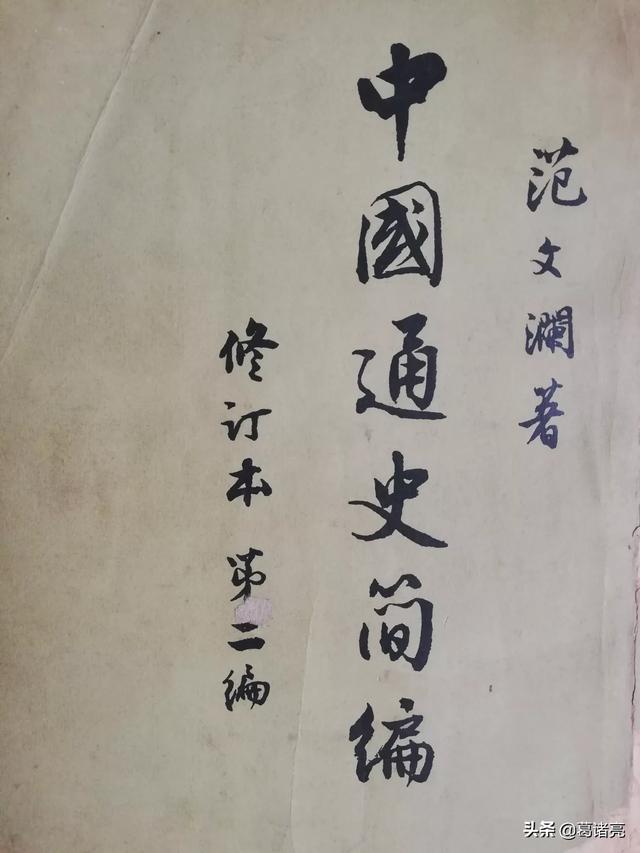 范文瀾著
中國通史简编
修订本 第二编
头条 @葛诸亮